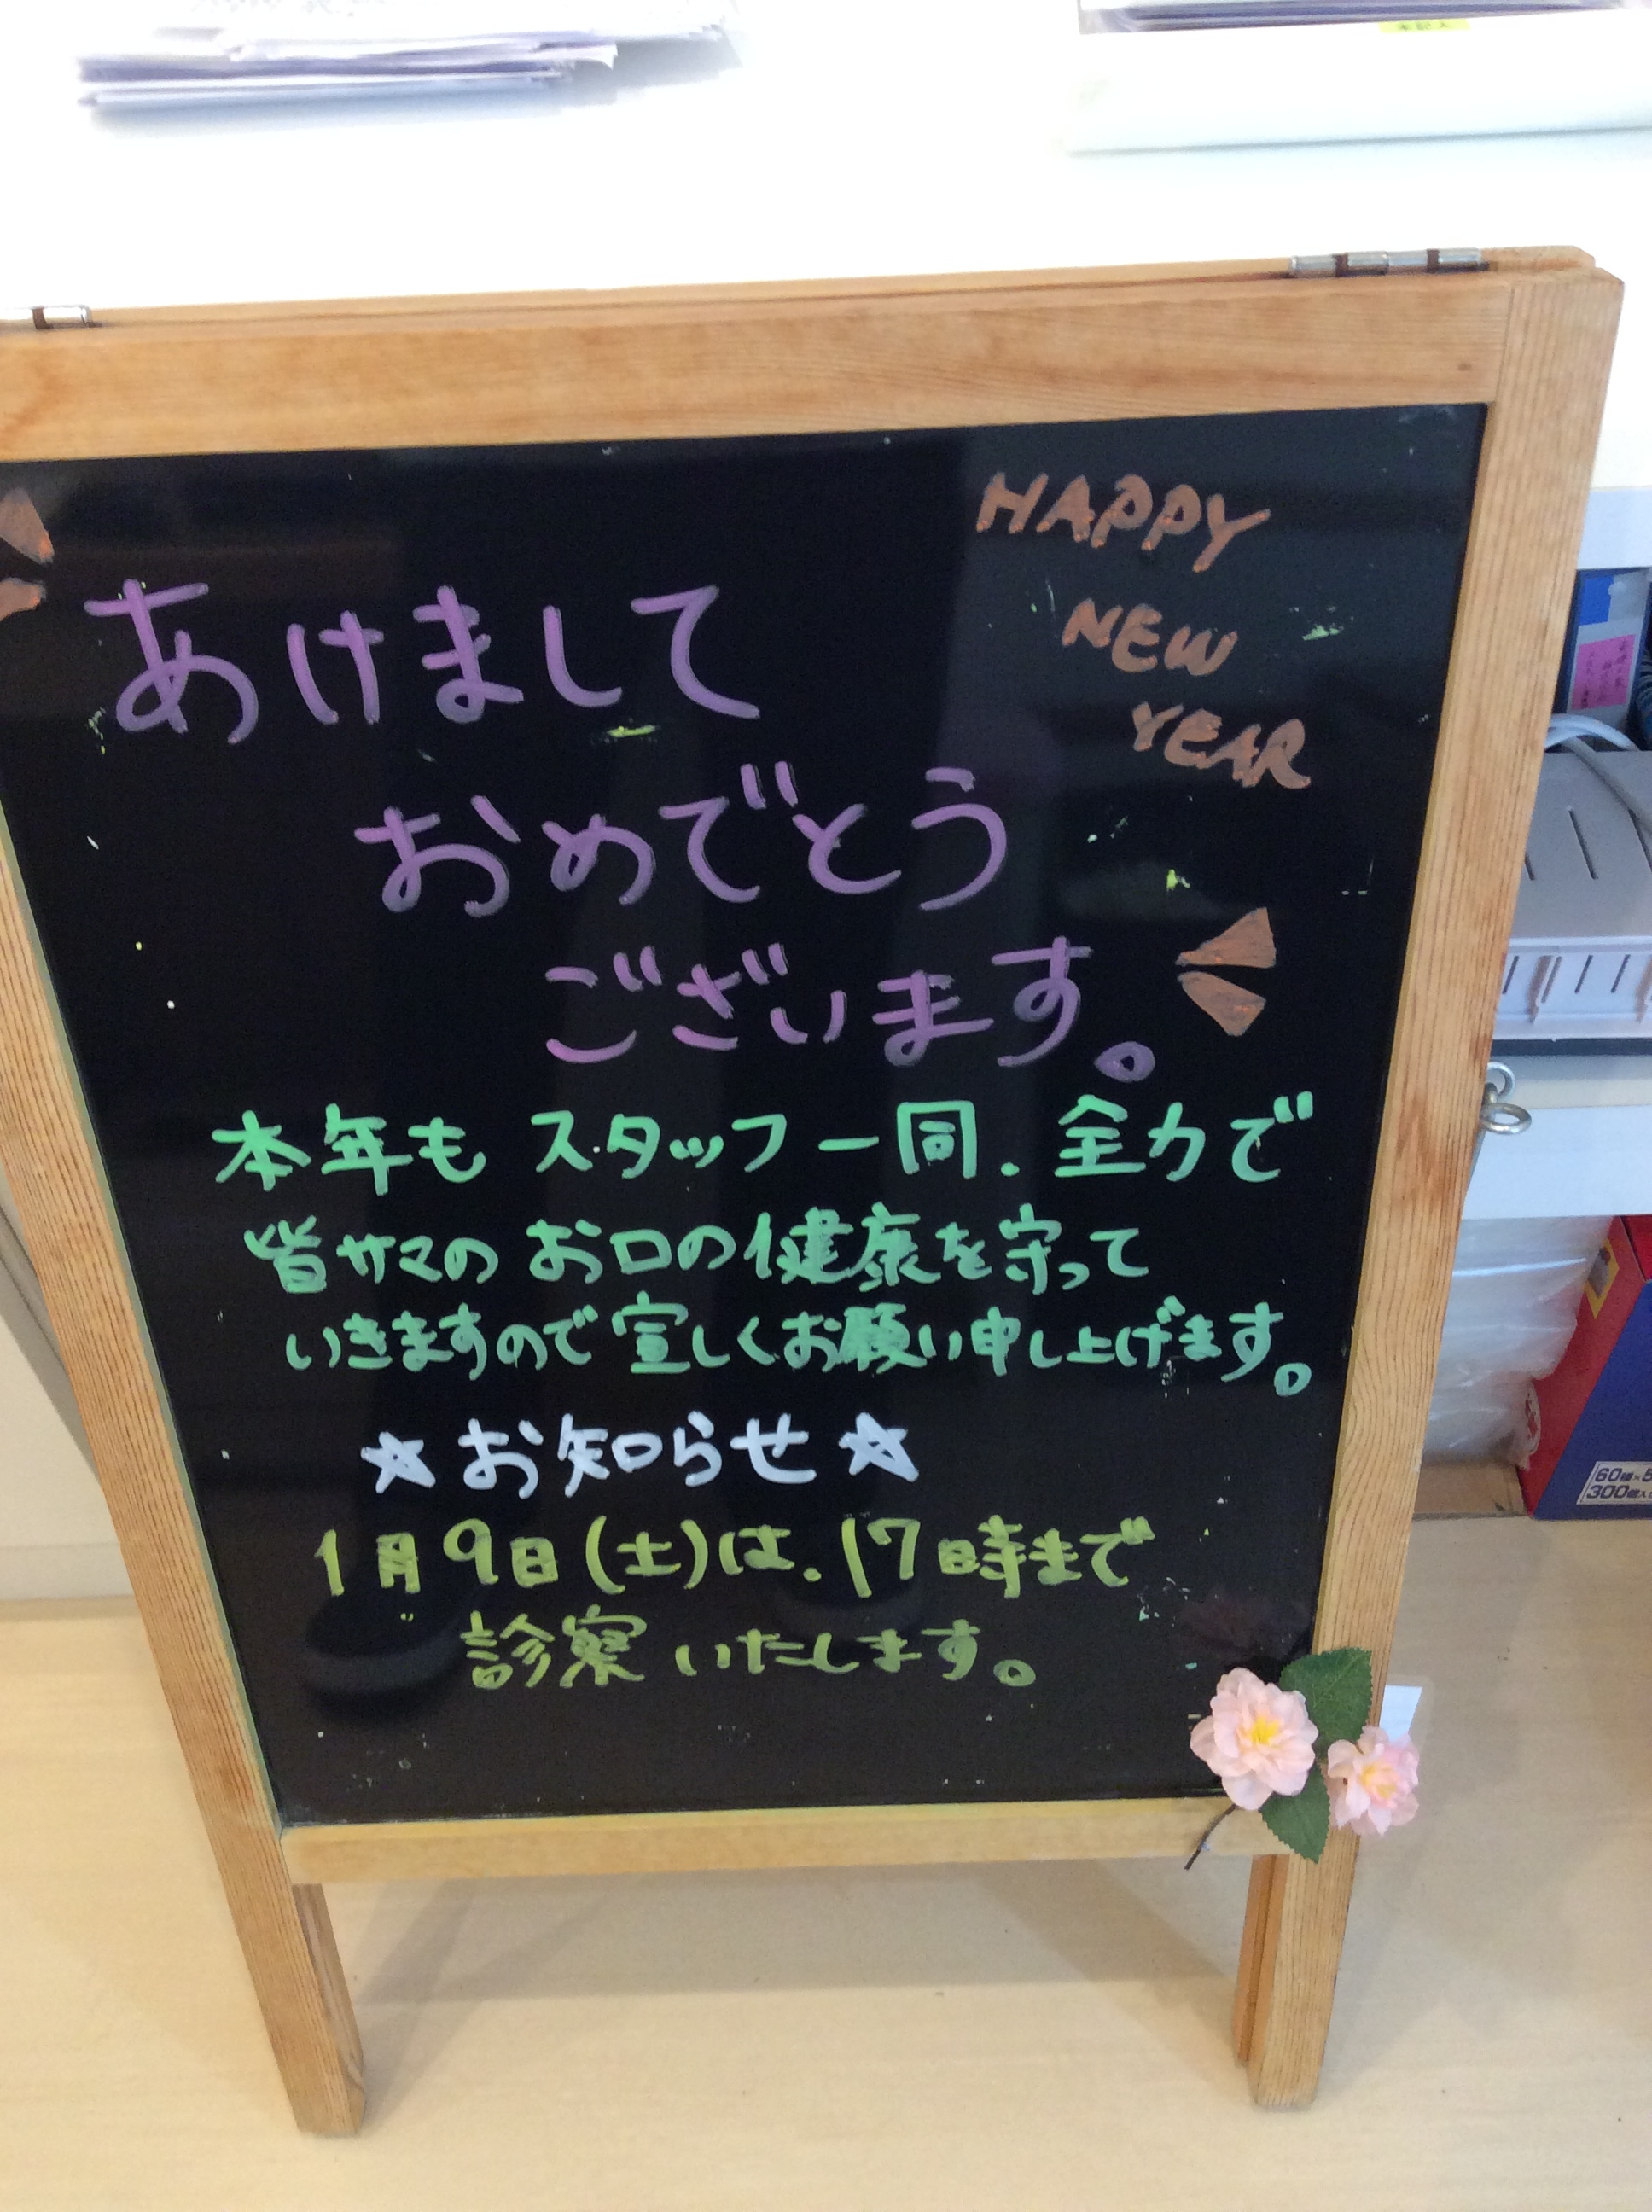 HAPPY
NEW
YEAR
あけまして
おめでとう
ございます。
本年も スタッフ一同、全力で
皆サマの お口の健康を守って
いきますので宜しくお願い申し上げます。
☆お知らせ☆
1月9日(土)は、17時まで
診察いたします。
60個×5
300個入